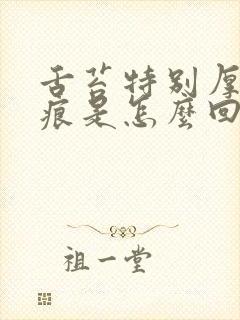 舌苔特别厚
痕是怎麽回
祖一堂